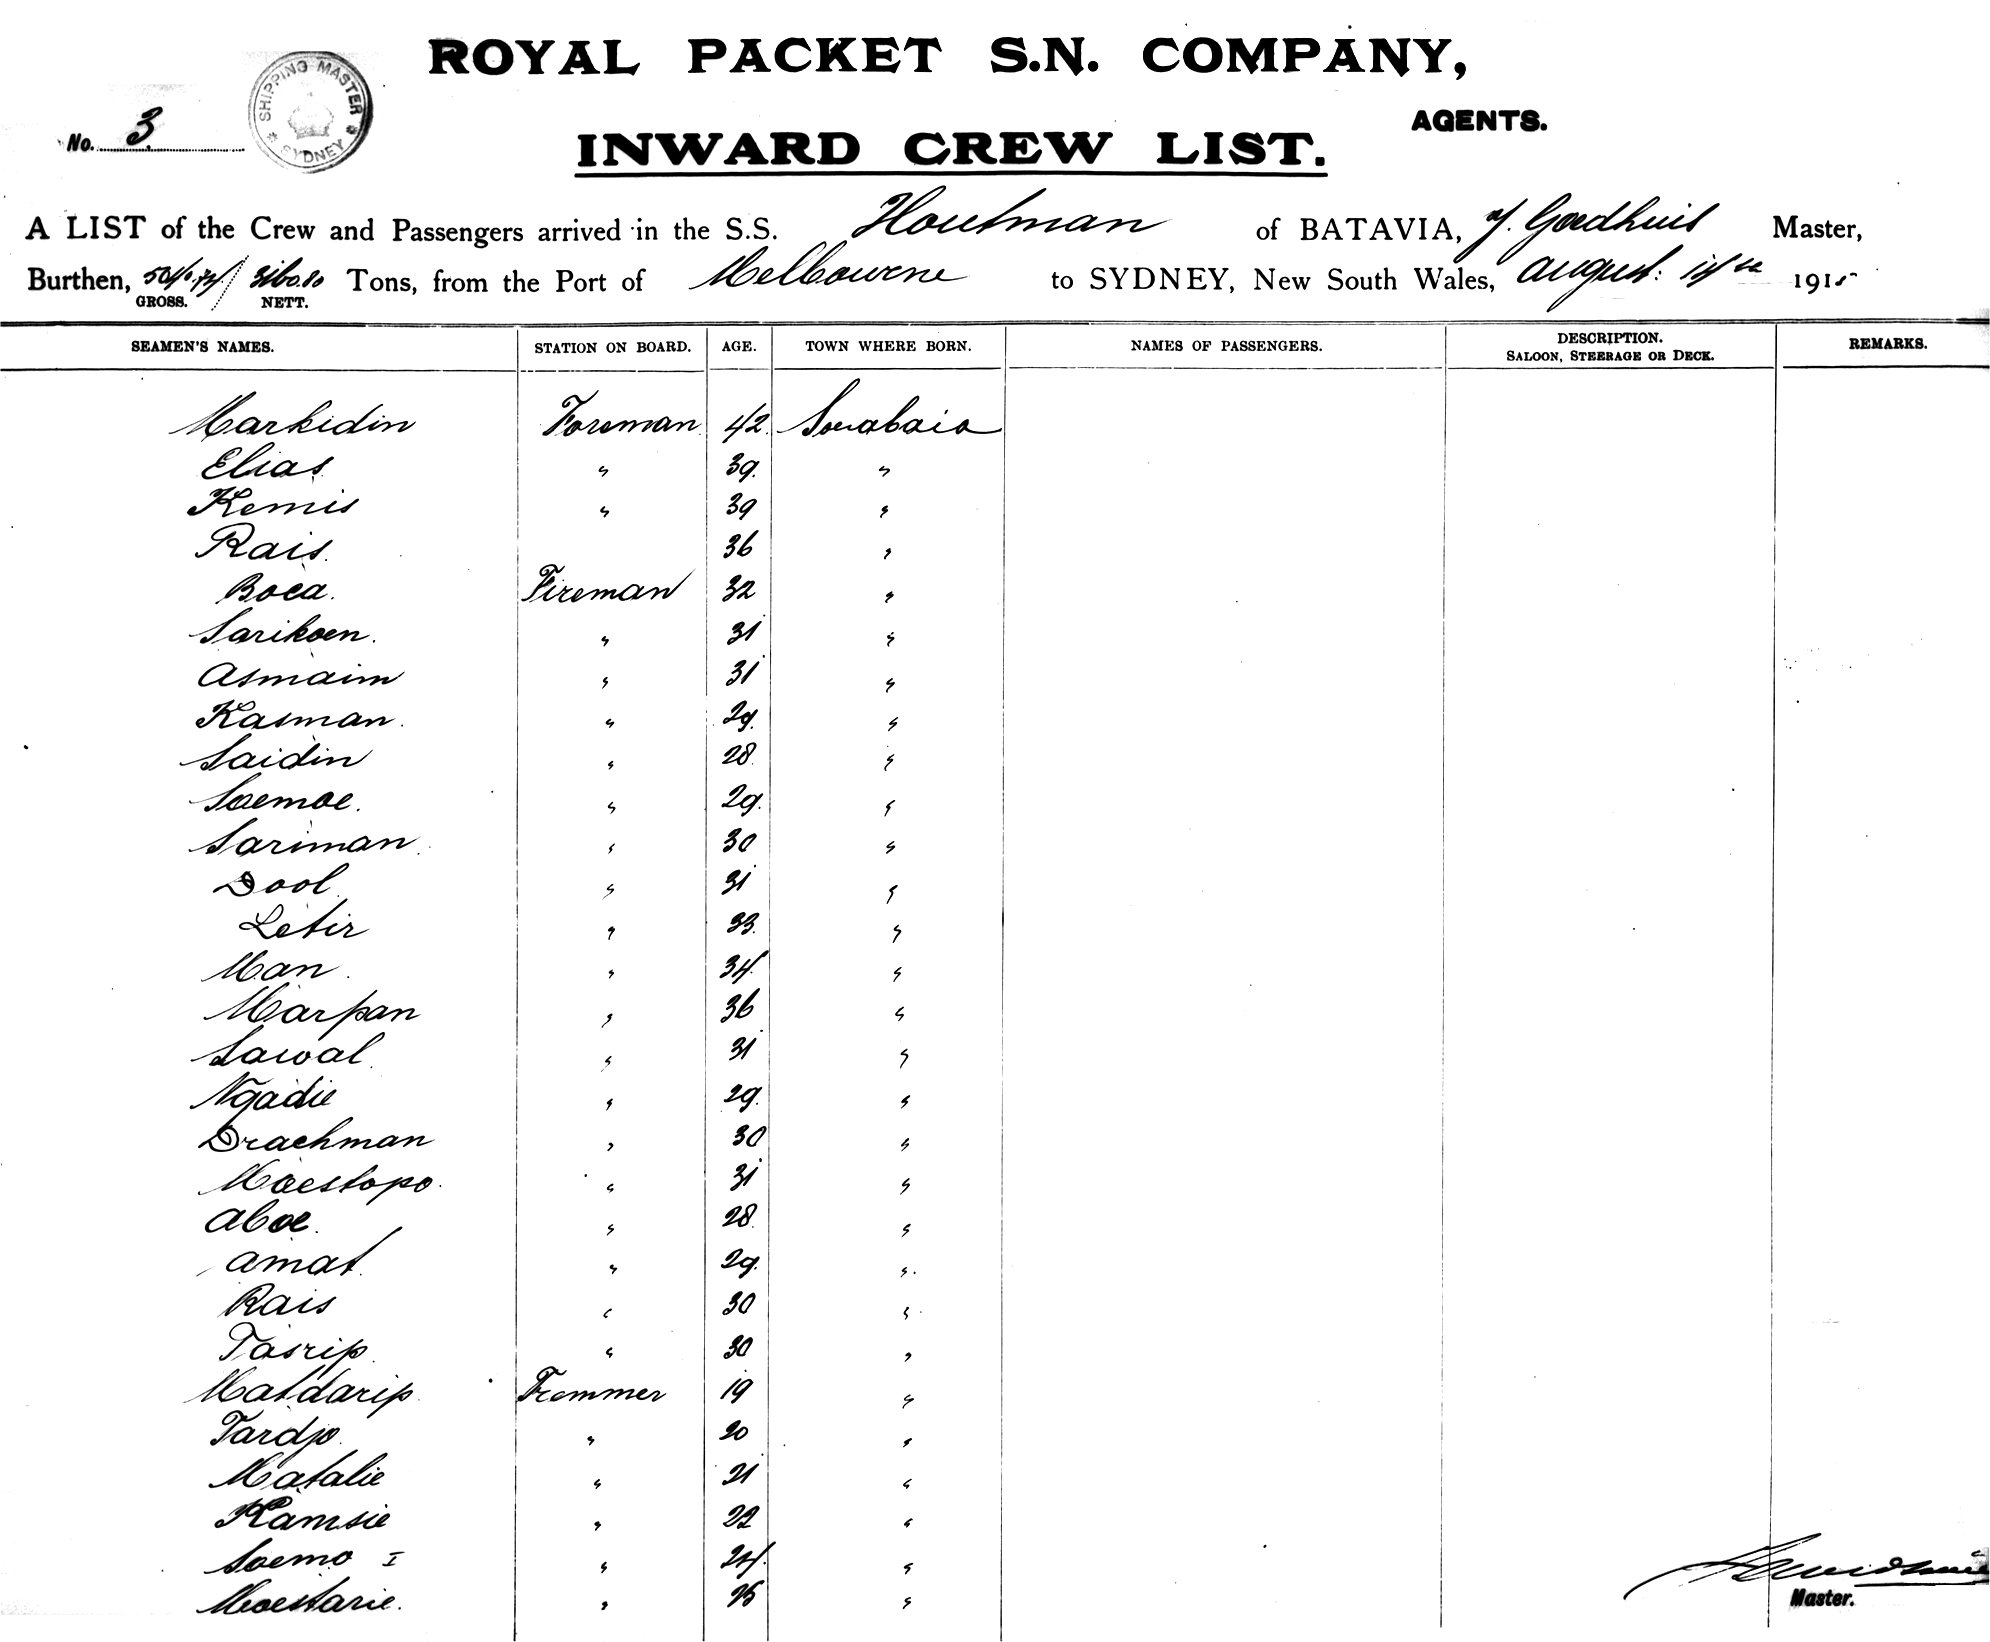 ROYAL PACKET S.N. COMPANY,
AGENTS.
No. 3.
SHIPPING MASTER SYDNEY
INWARD CREW LIST.
A LIST of the Crew and Passengers arrived in the S.S. Houtman of BATAVIA, J. Goedhuis Master,
Burthen, Tons, from the Port of Melbourne to SYDNEY, New South Wales, August: 14th 1915
GROSS. NETT.
SEAMEN'S NAMES. STATION ON BOARD. AGE. TOWN WHERE BORN. NAMES OF PASSENGERS. DESCRIPTION. SALOON, STEERAGE OR DECK. REMARKS.
Markidin Foreman 42. Soerabaia
Elias " 39. "
Kemis " 39 "
Rais. 36 "
Boea. Fireman 32 "
Sarikoen. " 31 "
Asmaim " 31 "
Kasman. " 29. "
Saidin " 28 "
Soemoe. " 29. "
Sariman. " 30 "
Dool " 31 "
Letir " 33. "
Man. " 34. "
Marpan " 36 "
Sawal " 31 "
Ngadie " 29. "
Drachman " 30 "
Moestopo. " 31 "
Aboe. " 28 "
Amat. " 29. "
Rais " 30 "
Tasrip " 30 "
Matdarip. Tremmer 19 "
Tardjo. " 20 "
Matalie " 21 "
Kamsie " 22 "
Soemo I " 24. "
Moestarie. " 25 "
Master.